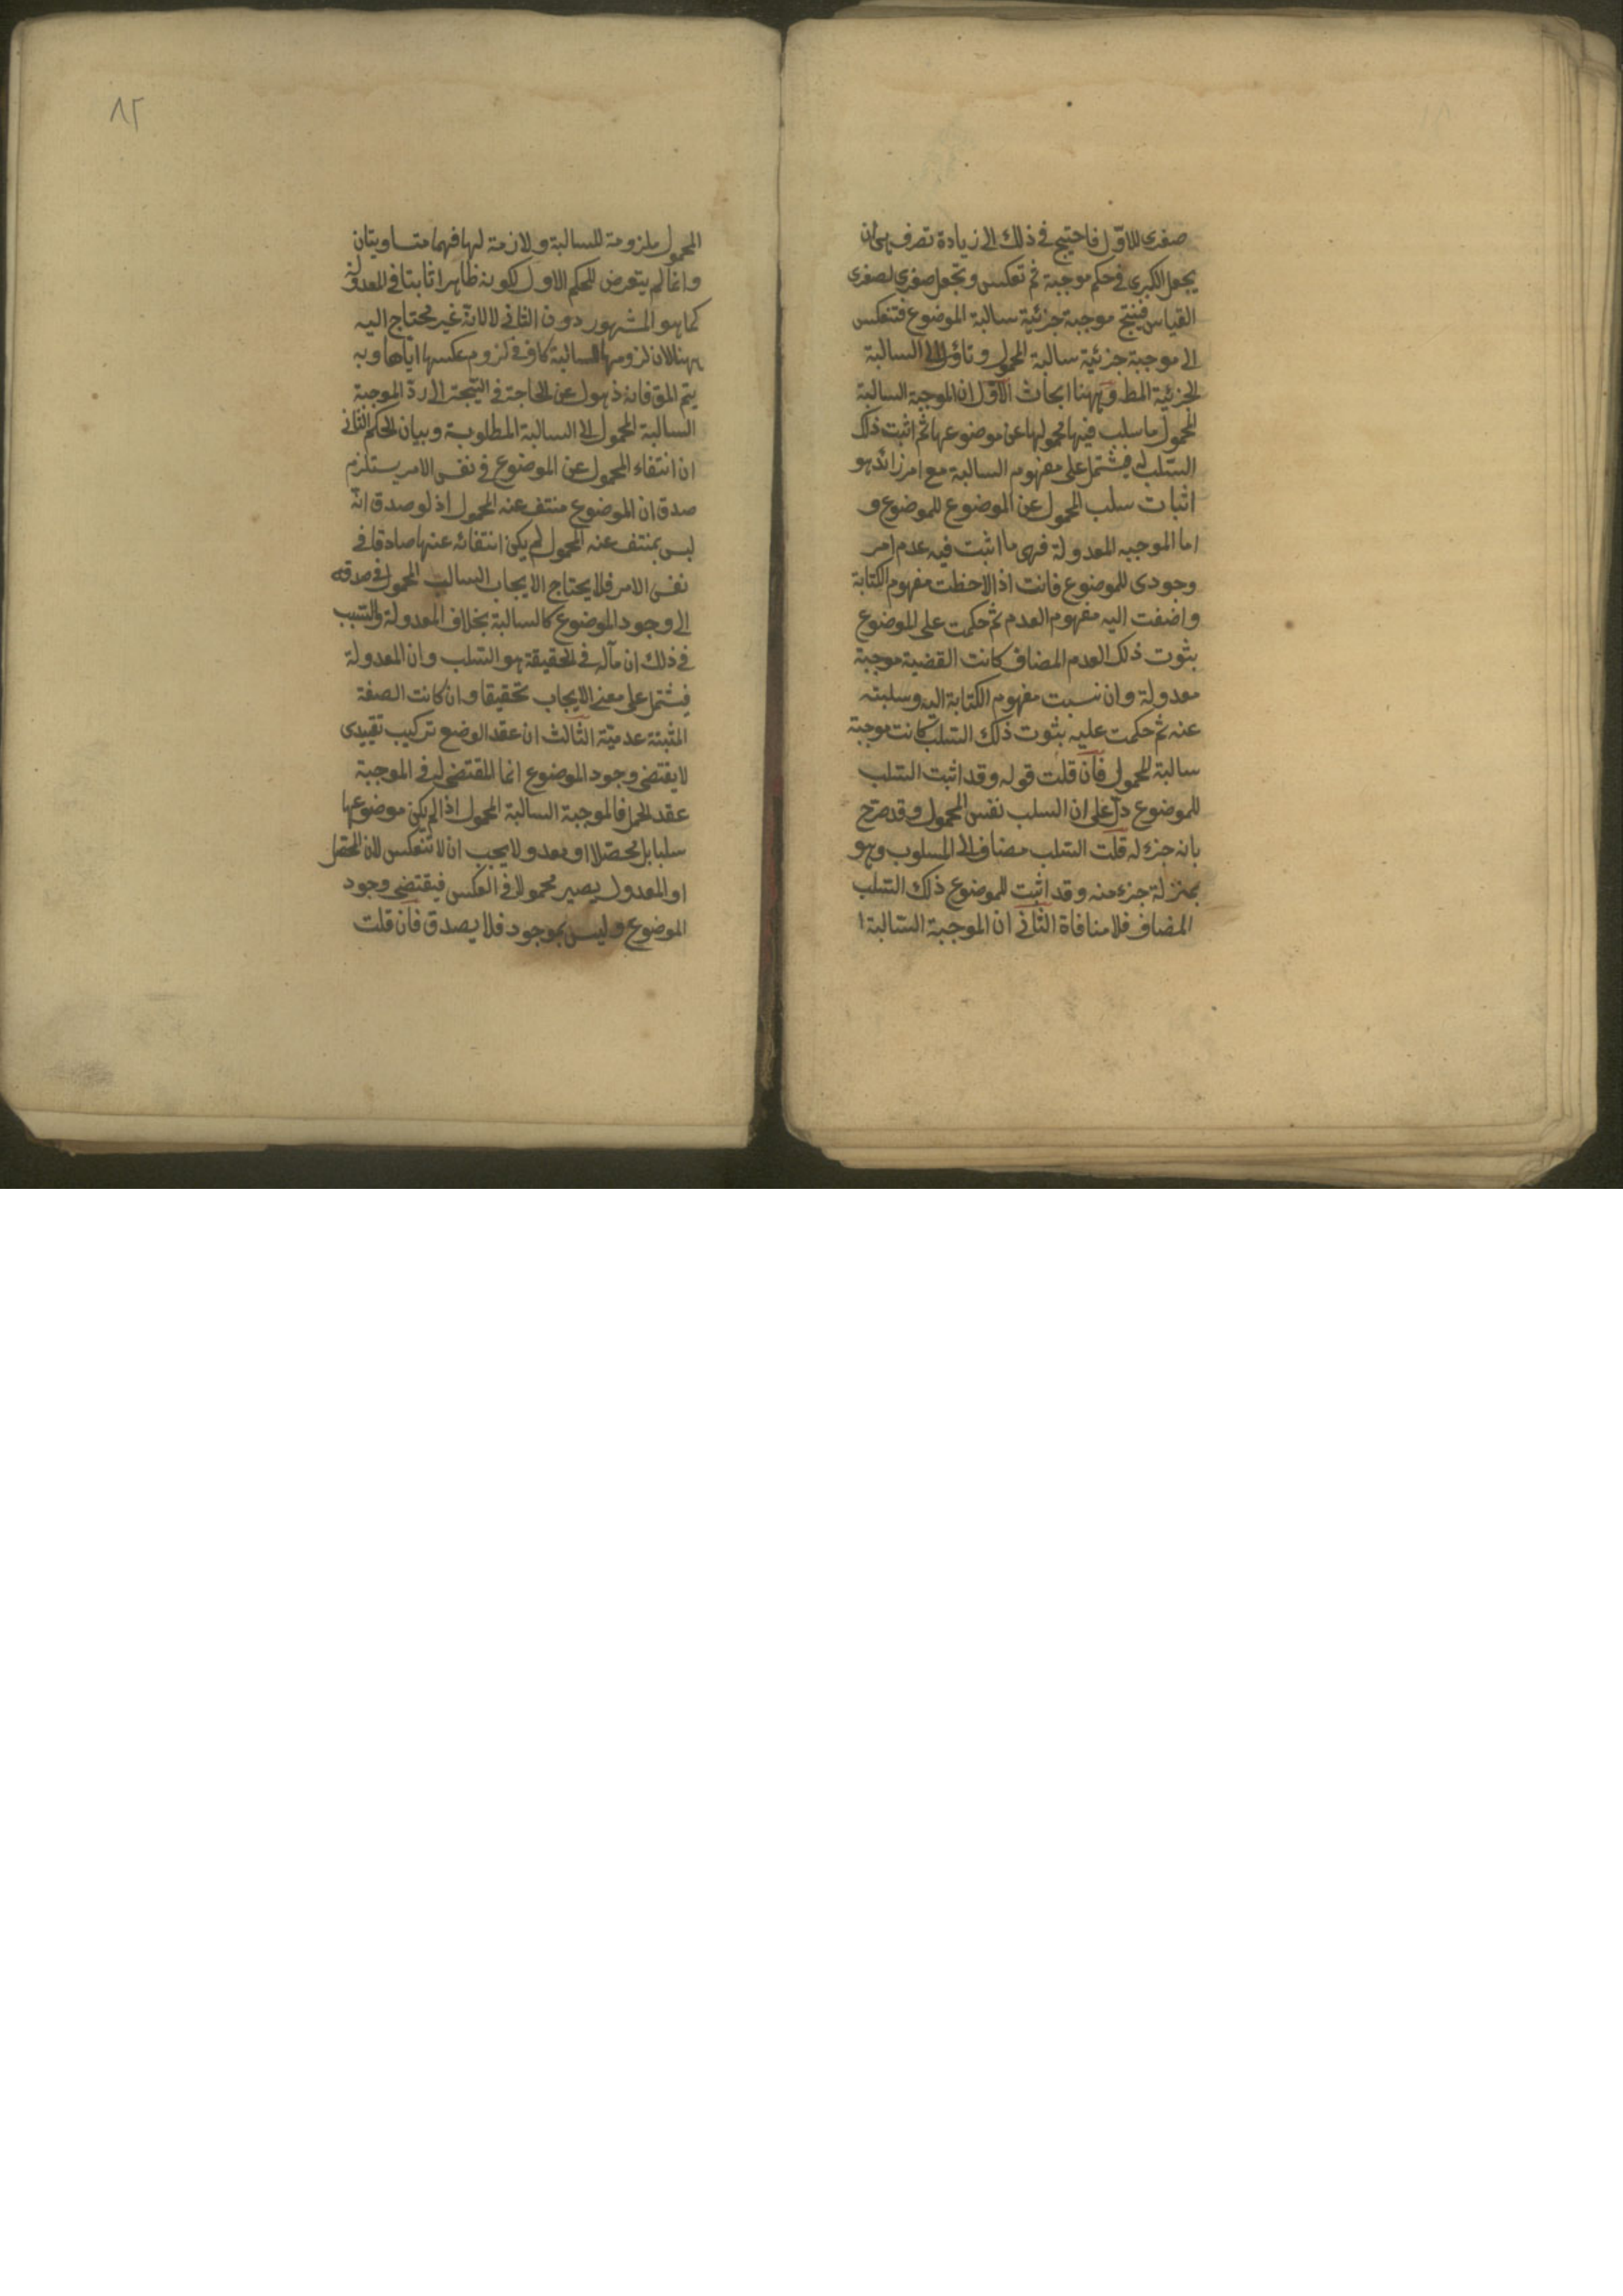 صغرى للاوّل فاحتيج فى ذلك الى زيادة تصرف هى ان
يجعل الكبرى فى حكم موجبة ثم تعكس وتجعل صغرى لصغرى
القياس فينتج موجبة جزئية سالبة الموضوع فتنعكس
الى موجبة جزئية سالبة المحمول وتاؤل الى السالبة
الجزئية المط وههنا ابحاث الاوّل ان الموجبة السالبة
المحمول ما سلب فيها محمولها عن موضوعها ثم اثبت ذلك
السّلب له فيشتمل على مفهوم السالبة مع امر زائد هو
اثبات سلب المحمول عن الموضوع للموضوع و
اما الموجبه المعدولة فهى ما اثبت فيه عدم امر
وجودى للموضوع فانت اذا لاحظت مفهوم الكتابة
واضفت اليه مفهوم العدم ثم حكمت على الموضوع
بثوت ذلك العدم المضاف كانت القضية موجبة
معدولة وان نسبت مفهوم الكتابة اليه وسلبته
عنه ثم حكمت عليه بثوت ذلك السّلب كانت موجبة
سالبة المحمول فان قلت قوله وقد اثبت السّلب
للموضوع دلّ على ان السلب نفس المحمول وقد صرّح
بانه جزء له قلت السّلب مضاف الى المسلوب وهو
بمنزلة جزء منه وقد اثبت للموضوع ذلك السّلب
المضاف فلا منافاة الثّانى ان الموجبة السّالبة ا
٨٢
المحمول ملزومة للسالبة ولازمة لها فهما متساويتان
وانما لم يتعرض للحكم الاول لكونه ظاهرا ثابتا فى المعدولة
كما هو المشهور دون الثانى لا لانّه غير محتاج اليه
ههنا لان لزومها للسالبة كاف فى لزوم عكسها اياها وبه
يتم المق فانه ذهول عن الحاجة فى النتيجة الى ردّ الموجبة
السالبة المحمول الى السالبة المطلوبة وبيان الحكم الثانى
ان انتفاء المحمول عن الموضوع فى نفس الامر يستلزم
صدق ان الموضوع منتف عنه المحمول اذ لو صدق انّه
ليس بمنتف عنه المحمول لم يكن انتفائه عنها صادقا فى
نفس الامر فلا يحتاج الايجاب السالب المحمول فى صدقه
الى وجود الموضوع كالسالبة بخلاف المعدولة والسّبب
فى ذلك ان مآله فى الحقيقة هو السّلب وان المعدولة
فيشتمل على معنى الايجاب تحقيقا وان كانت الصفة
المثبتة عدميّة الثّالث ان عقد الوضع تركيب تقييدى
لا يقتضى وجود الموضوع انما المقتضى له فى الموجبة
عقد الحمل فالموجبة السالبة المحمول اذا لم يكن موضوعها
سلبا بل محصّلا او معدولا يجب ان لا تنعكس لان المحصّل
او المعدول يصير محمولا فى العكس فيقتضى وجود
الموضوع وليس بموجود فلا يصدق فان قلت